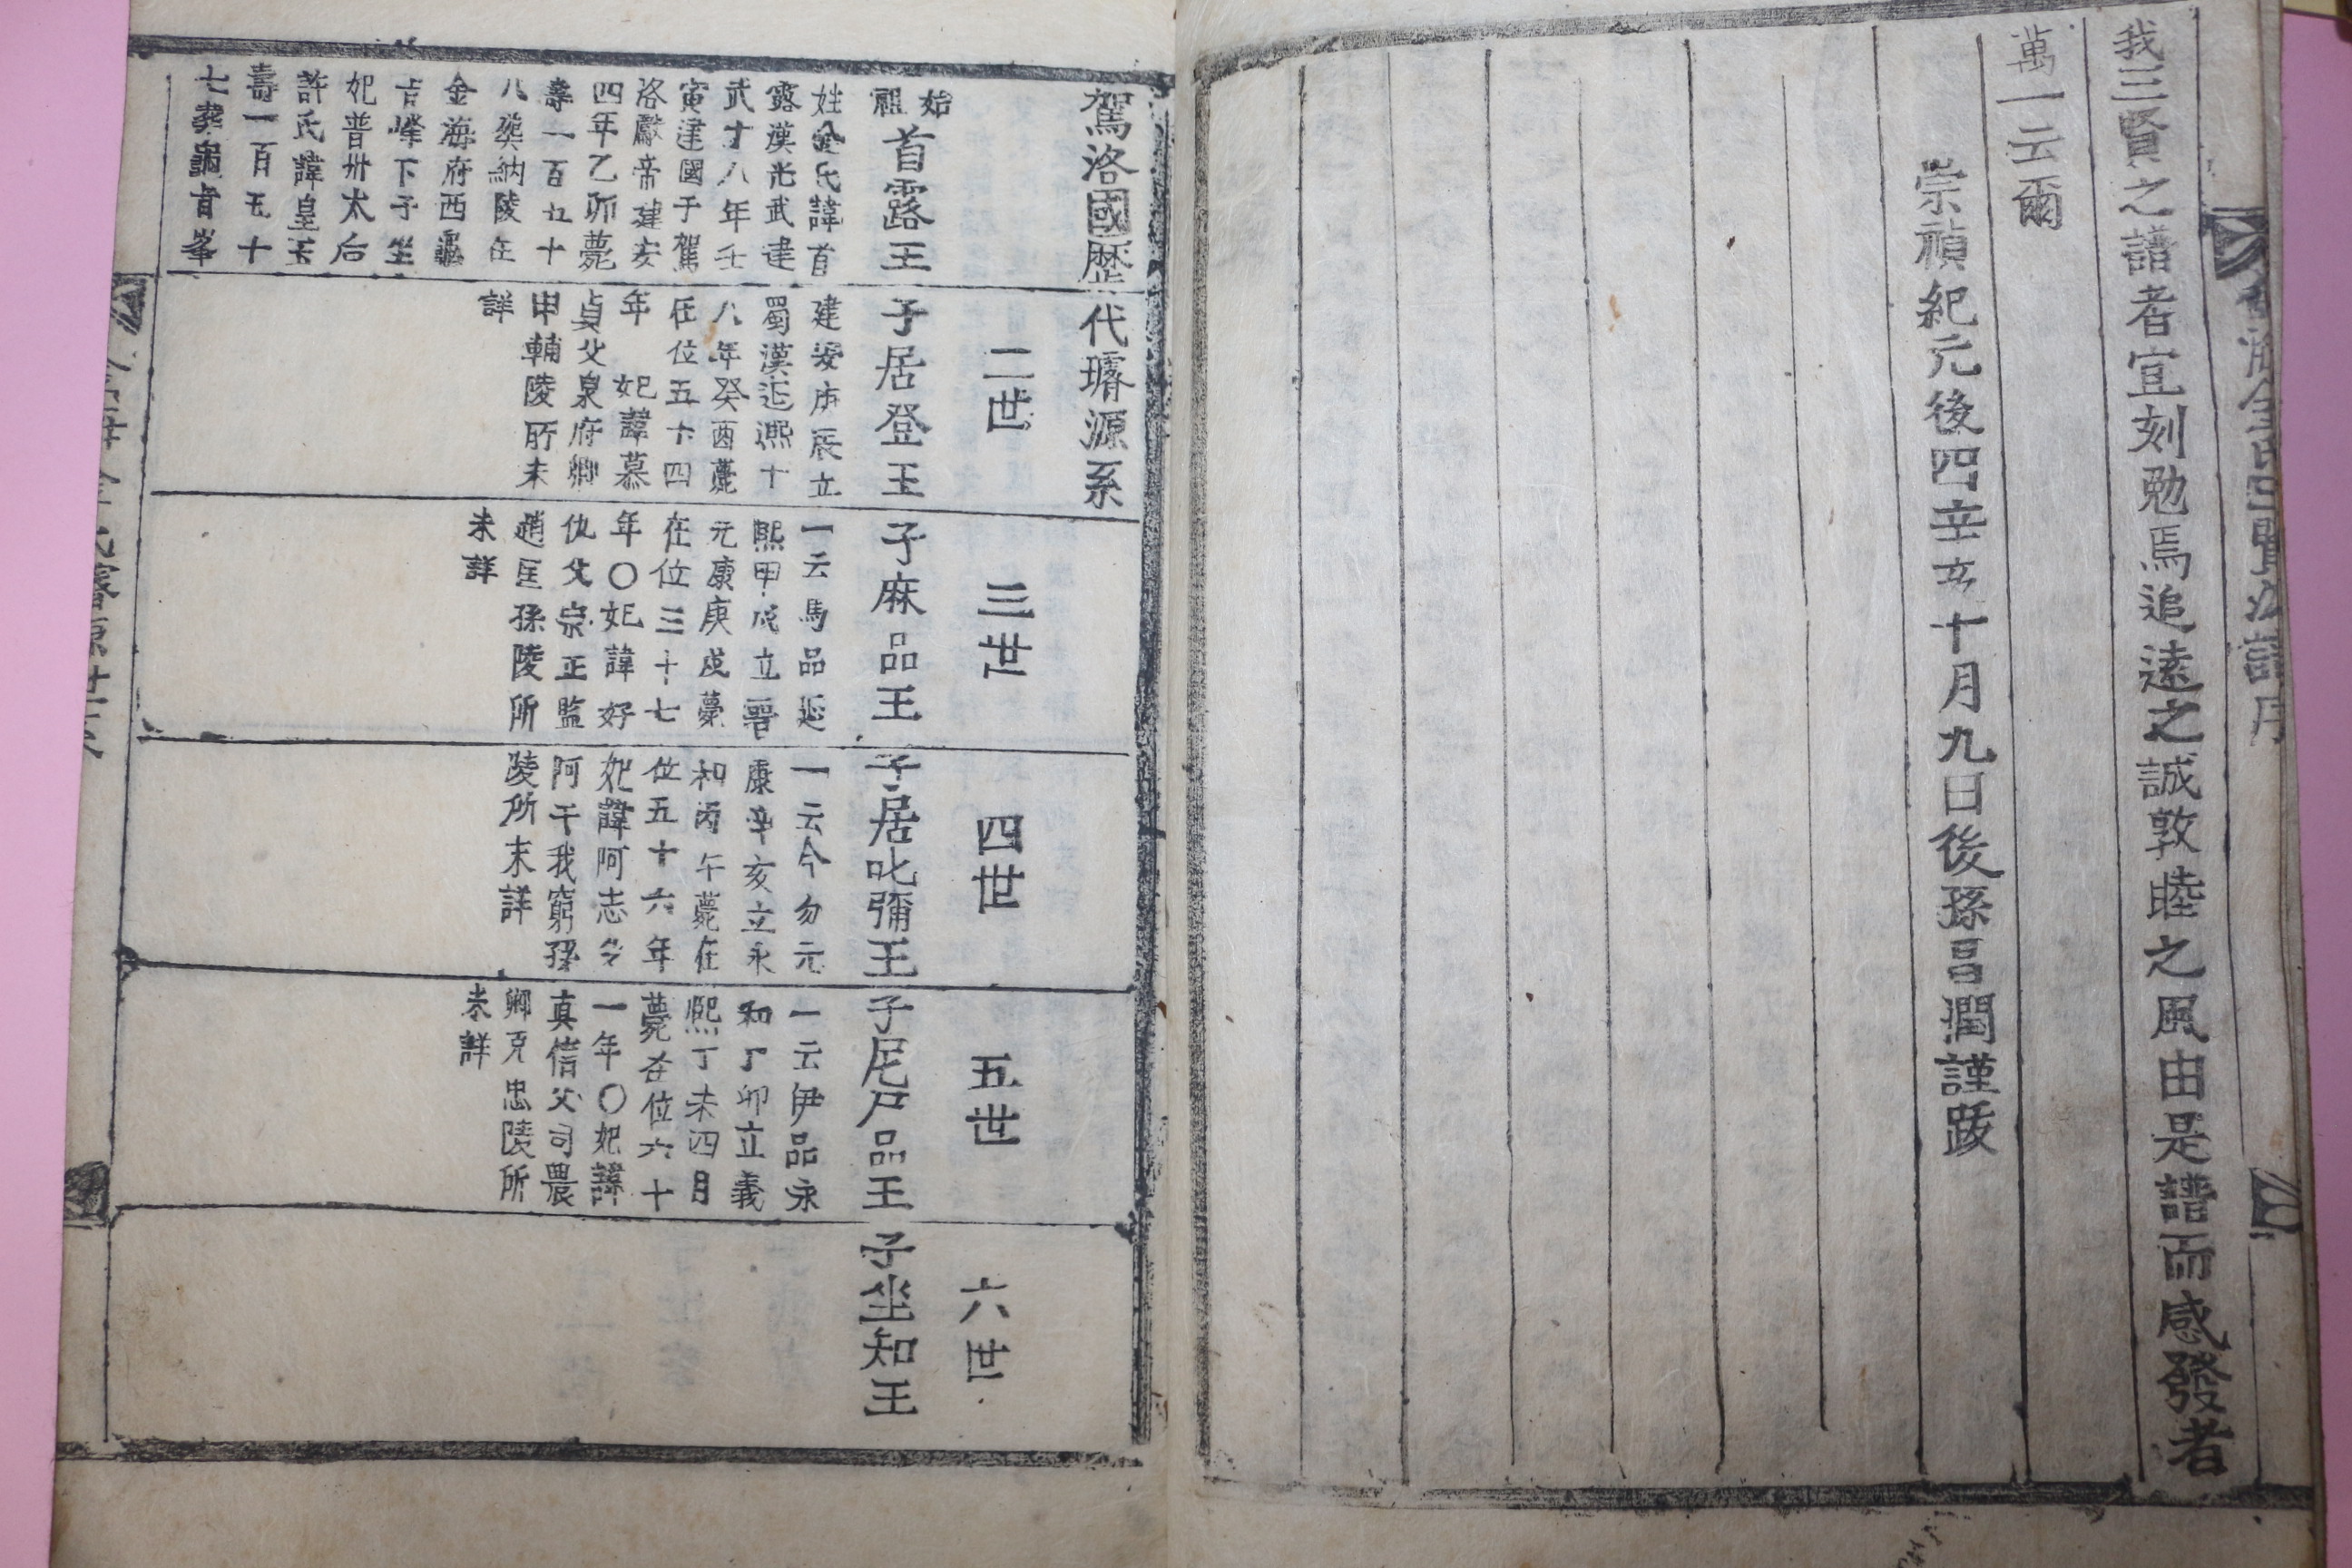 我三賢之譜者宜刻勉焉追遠之誠敦睦之風由是譜而感發者
萬一云爾
崇禎紀元後四辛亥十月九日後孫昌潤謹跋
駕洛國歷代璿源系
始祖
首露王
姓金氏諱首
露漢光武建
武十八年壬
寅建國于駕
洛獻帝建安
四年乙卯薨
壽一百五十
八葬納陵在
金海府西龜
旨峰下子坐
妃普州太后
許氏諱皇玉
壽一百五十
七葬龜旨峯
二世
子居登王
建安庚辰立
蜀漢延熙十
八年癸酉薨
在位五十四
年 妃諱慕
貞父泉府卿
申輔陵所未
詳
三世
子麻品王
一云馬品延
熙甲戌立晋
元康庚戌薨
在位三十七
年〇妃諱好
仇父宗正監
趙匡孫陵所
未詳
四世
子居叱彌王
一云今勿元
康辛亥立永
和丙午薨在
位五十六年
妃諱阿志父
阿干我窮孫
陵所未詳
五世
子尼尸品王
一云伊品永
和丁卯立義
熙丁未四月
薨在位六十
一年〇妃諱
真信父司農
卿克忠陵所
未詳
六世
子坐知王